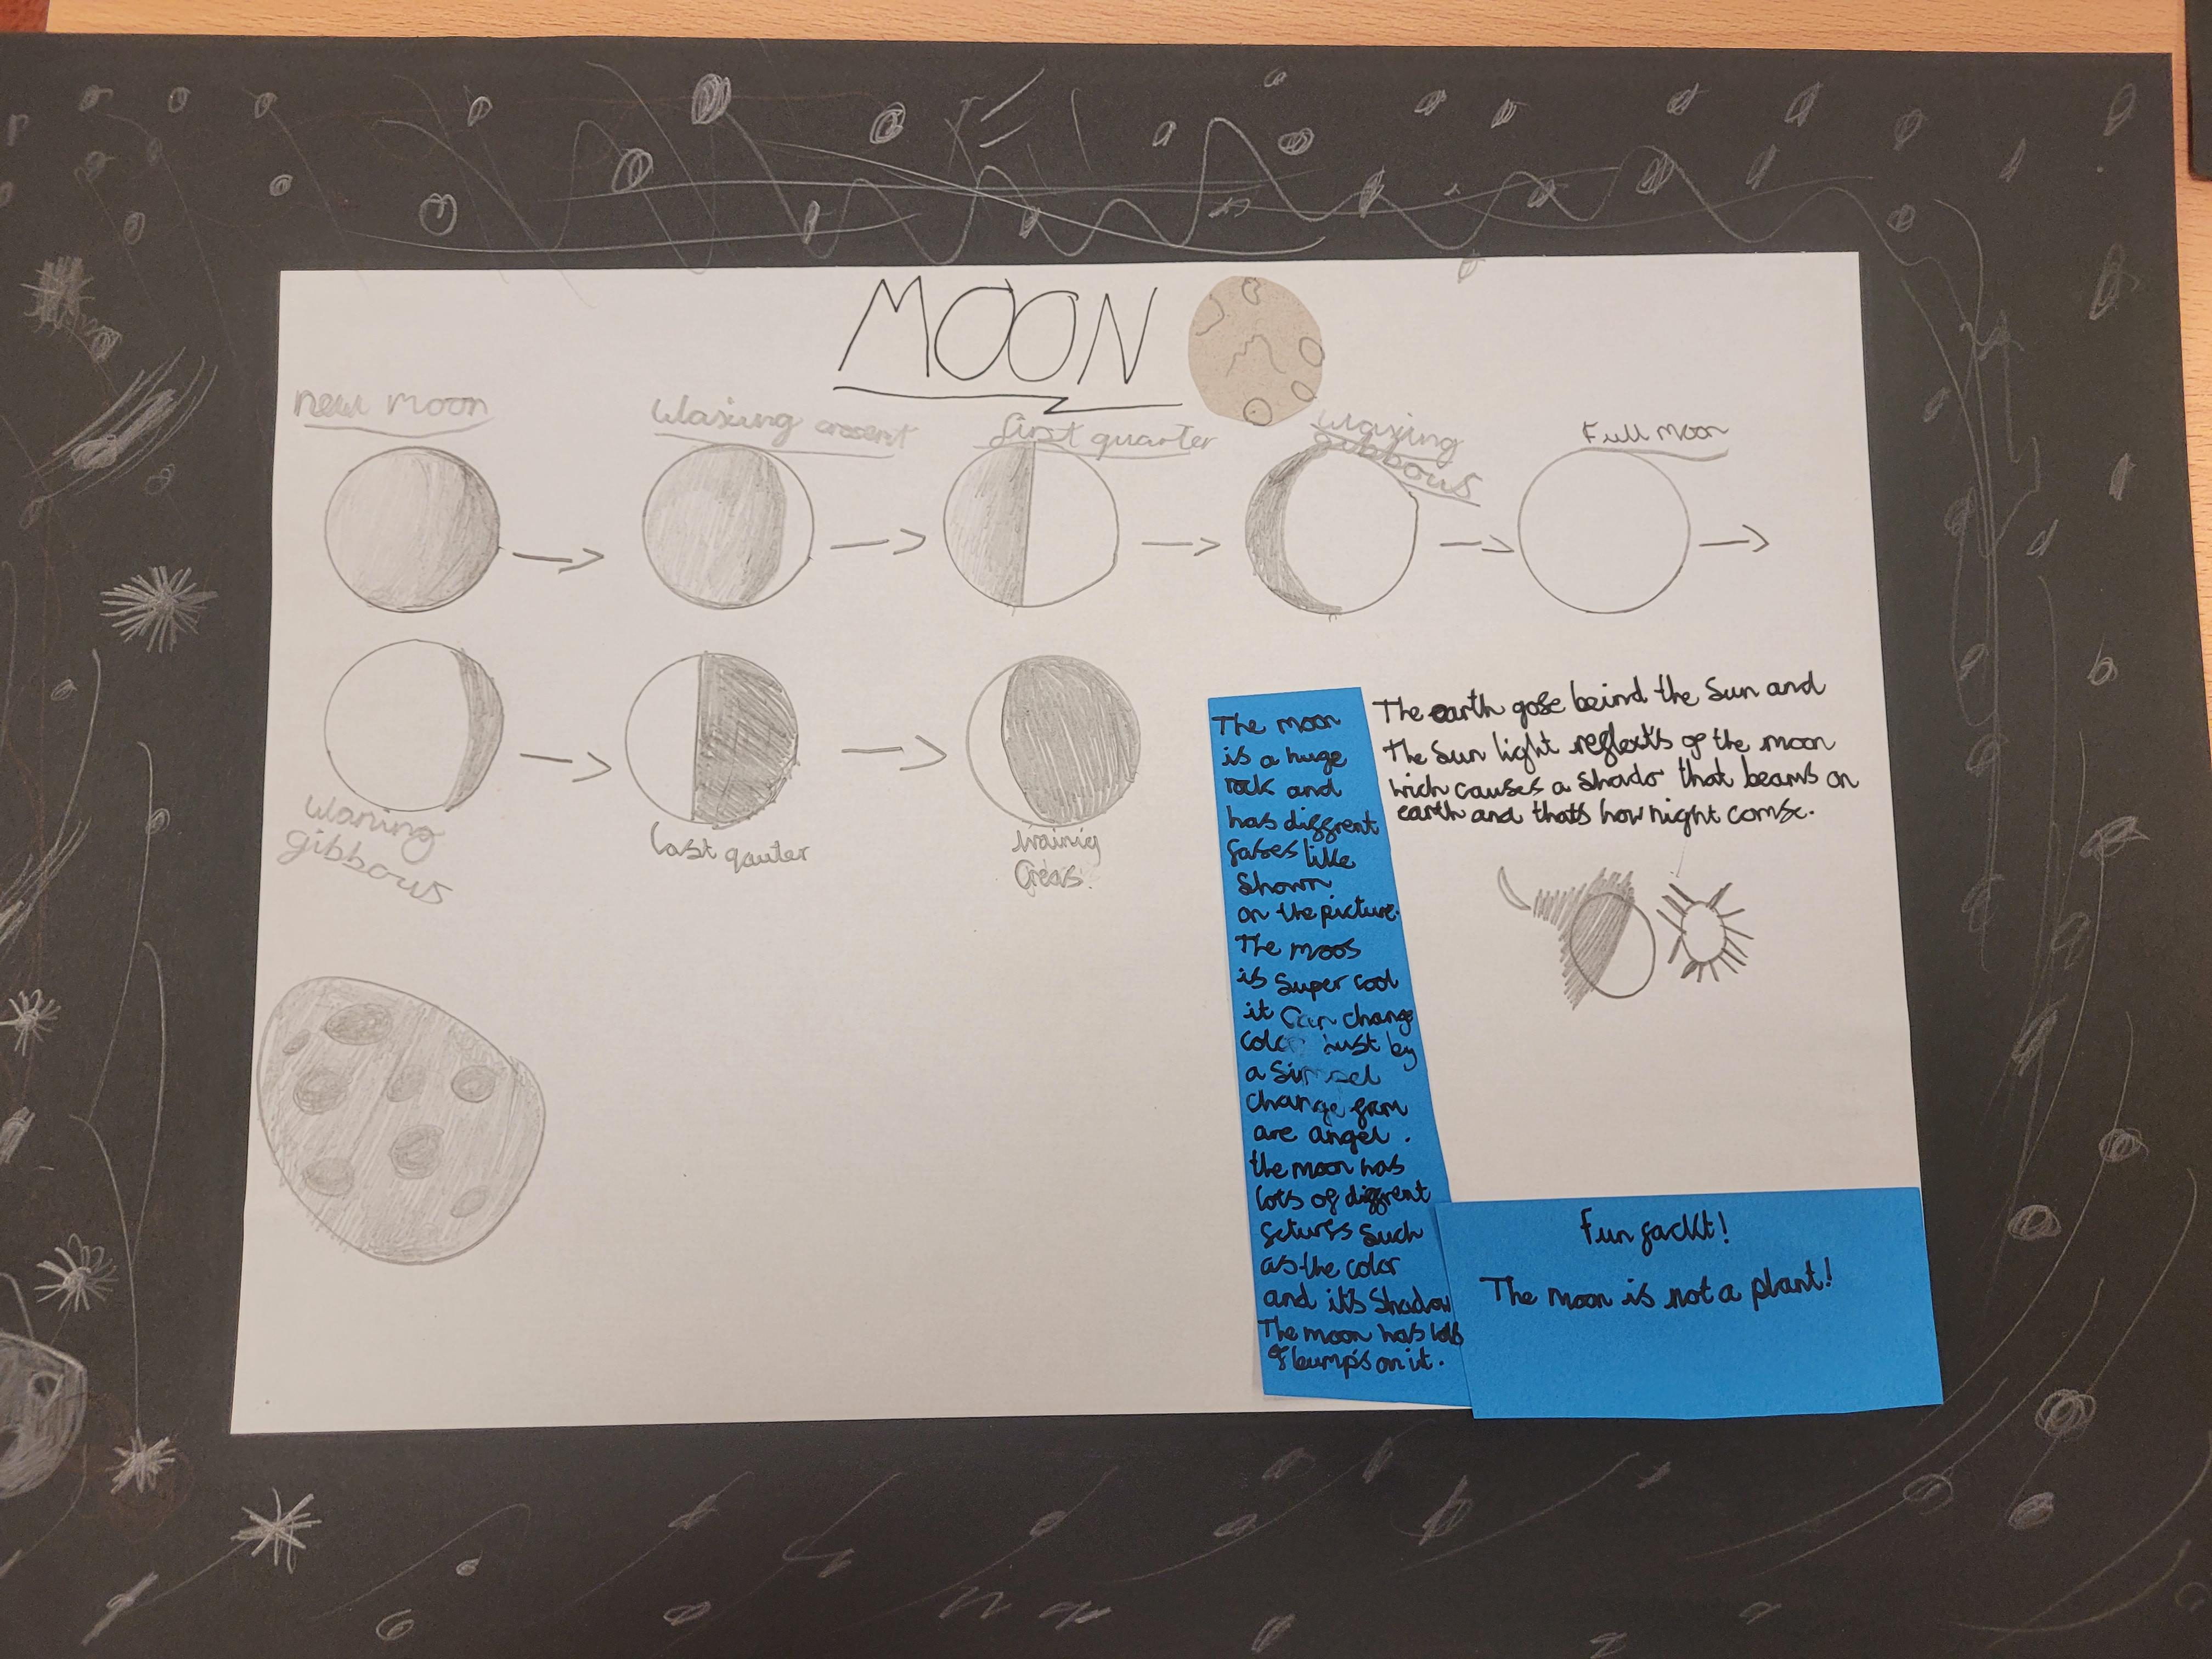 MOON
new moon
Waxing cresent
first quarter
Waxing
gibbous
Full moon
Waning
gibbous
Last qauter
Wainig
The earth gose beind the Sun and
the Sun light reflexts of the moon
wich causes a Shado that beams on
earth and thats how night comse.
The moon
is a huge
rock and
has diffrent
fases like
Shown
on the picture.
The moos
is Super cool
it Can change
just by
a
change from
are angel.
the moon has
lots of diffrent
feturs Such
as the color
and it's Shadow
The moon has lots
of bumps on it.
Fun fackt!
The moon is not a plant!